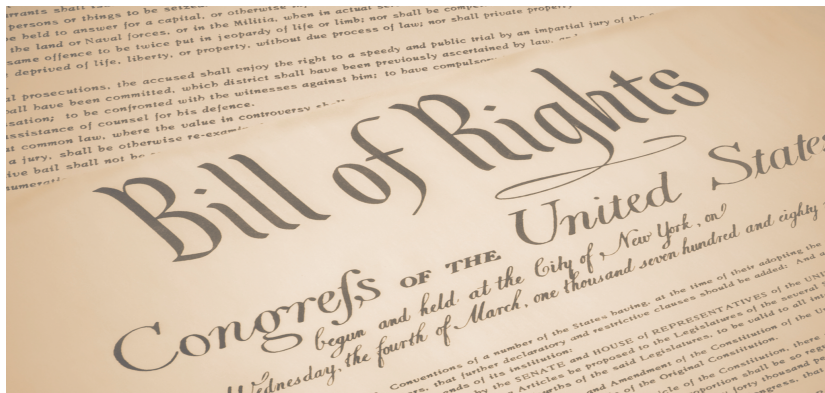 shall
persons or things to be seized
be held to answer for a capital, or otherwise
the land or Naval forces, or in the Militia, when in actual
same offence to be twice put in jeopardy of life or limb; nor shall be
deprived of life, liberty, or property, without due process of law; nor shall private property
prosecutions, the accused shall enjoy the right to a speedy and public trial by an impartial jury of the
shall have been committed, which district shall have been previously ascertained by law,
to be confronted with the witnesses against him; to have
assistance of counsel for his defence.
at common law, where the value in controversy
a jury, shall be otherwise
bail shall not be
Bill of Rights
Congreſs OF THE United States
begun and held at the City of New York, on
Wednesday, the fourth of March, one thousand seven hundred and eighty
Conventions of a number of the States having, at the time of their adopting the
that further declaratory and restrictive clauses should be added: And
of its institution:
by the SENATE and HOUSE of REPRESENTATIVES of the
Articles be proposed to the Legislatures of the several
of the said Legislatures, to be valid to all
and Amendment of the Constitution of the
of the Original Constitution.
of the Constitution, there
shall be so
forty thousand
that